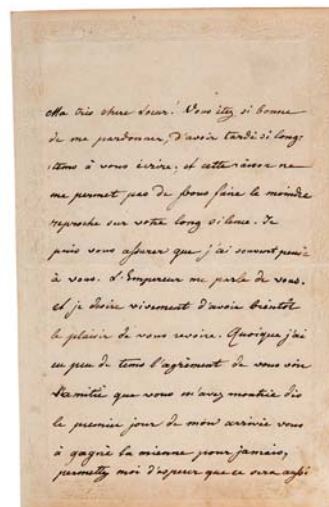 Ma très chere Soeur! Vous êtez si bonne
de me pardonner, d'avoir tardé si long:
tems à vous écrire; et cette raison ne
me permet pas de Vous faire le moindre
reproche sur votre long silence. Je
puis vous assurer que j'ai souvent pensé
à vous. L'Empereur me parle de vous.
et je desire vivement d'avoir bientôt
le plaisir de vous revoire. Quoique j'ai
eu peu de tems l'agrèment de vous voir
l'amitié que vous m'avez montrée dès
le premier jour de mon arrivée vous
à gagné la mienne pour jamais,
permettez moi d'esperer que ce sera aussi